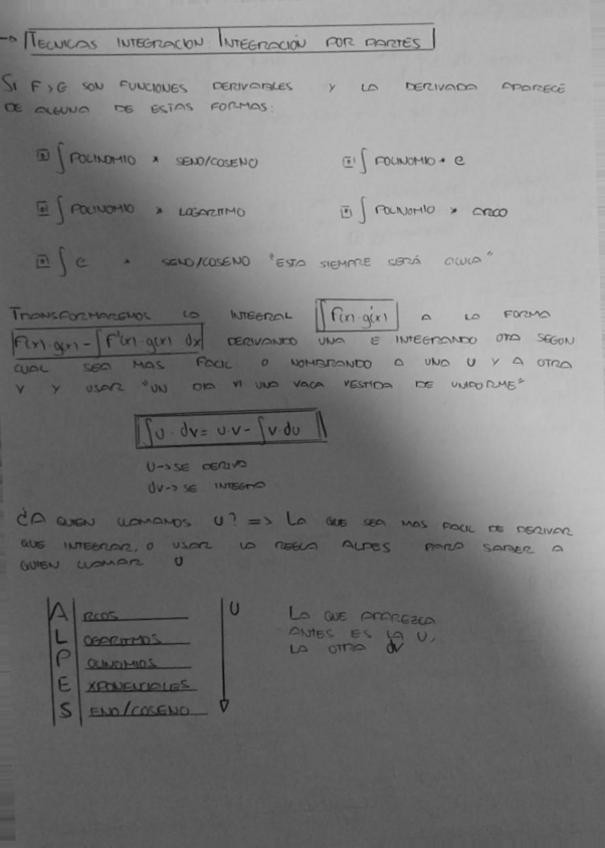 → TECNICAS INTEGRACION: INTEGRACIÓN POR PARTES
SI F y G SON FUNCIONES DERIVABLES Y LA DERIVADA APARECE
DE ALGUNA DE ESTAS FORMAS:
∫ POLINOMIO * SENO/COSENO
∫ POLINOMIO * e
∫ POLINOMIO * LOGARITMO
∫ POLINOMIO * ARCO
∫ e * SENO/COSENO "ESTA SIEMPRE SERÁ CICLICA"
TRANSFORMAREMOS LA INTEGRAL ∫ f(x)·g'(x) A LA FORMA
f(x)·g(x) - ∫ f'(x)·g(x) dx DERIVANDO UNA E INTEGRANDO OTRA SEGUN
CUAL SEA MAS FACIL O NOMBRANDO A UNA U Y A OTRA
V Y USAR "UN DIA VI UNA VACA VESTIDA DE UNIFORME"
∫U · dv = U·V - ∫V·dU
U → SE DERIVA
dv → SE INTEGRA
¿A QUIEN LLAMAMOS U? => LA QUE SEA MAS FACIL DE DERIVAR
QUE INTEGRAR, O USAR LA REGLA ALPES PARA SABER A
QUIEN LLAMAR U
A RCOS
L OGARITMOS
P OLINOMIOS
E XPONENCIALES
S ENO/COSENO
U
LA QUE APAREZCA
ANTES ES LA U,
LA OTRA dv